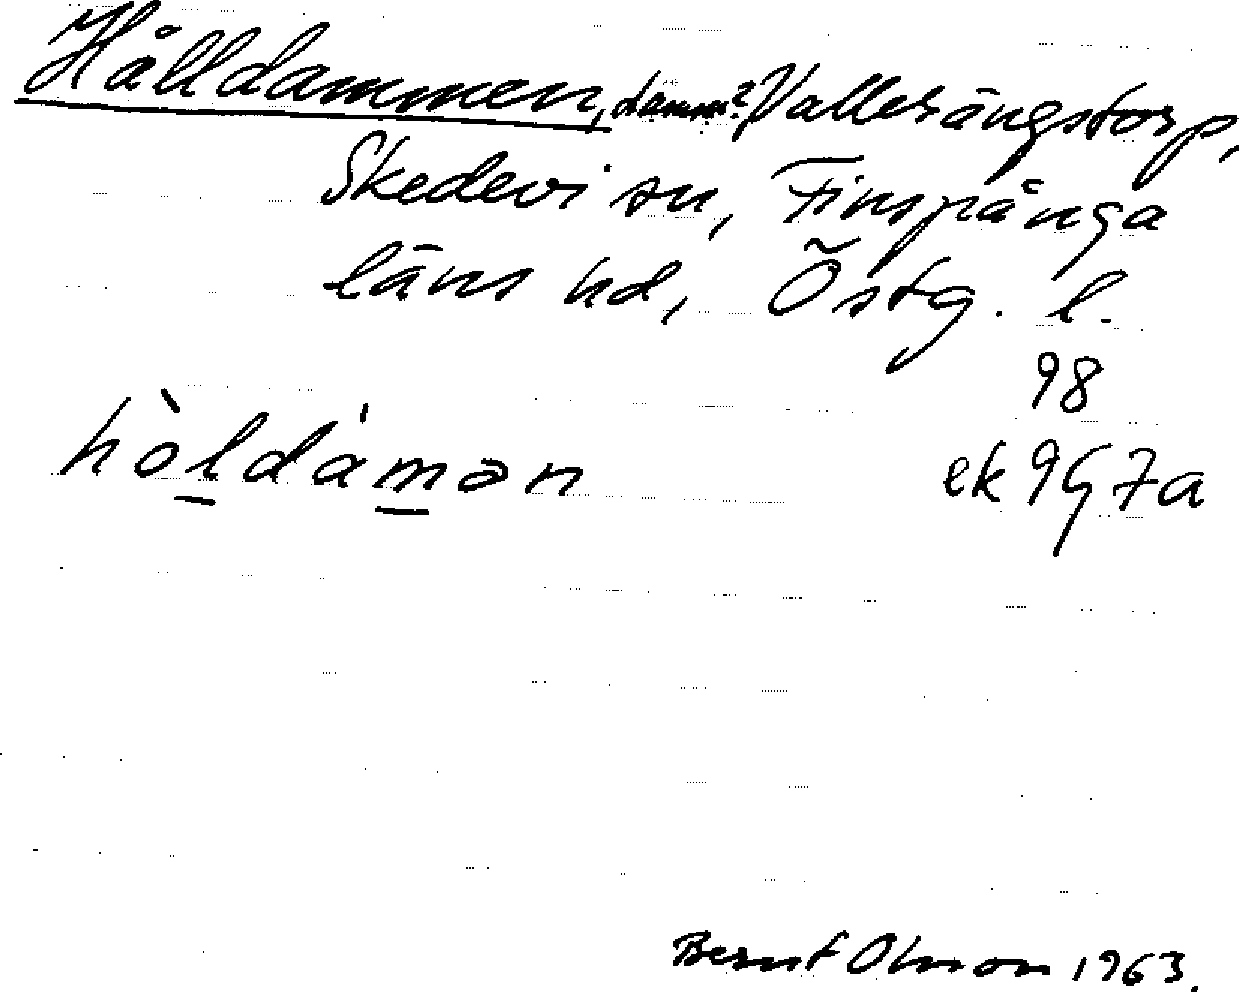 Hålldammen, damm? Vallerängstorp,
Skedevi sn, Finspånga
läns hd, Östg. l.
98
hòldámən ek 9G7a
Bernt Olsson 1963.